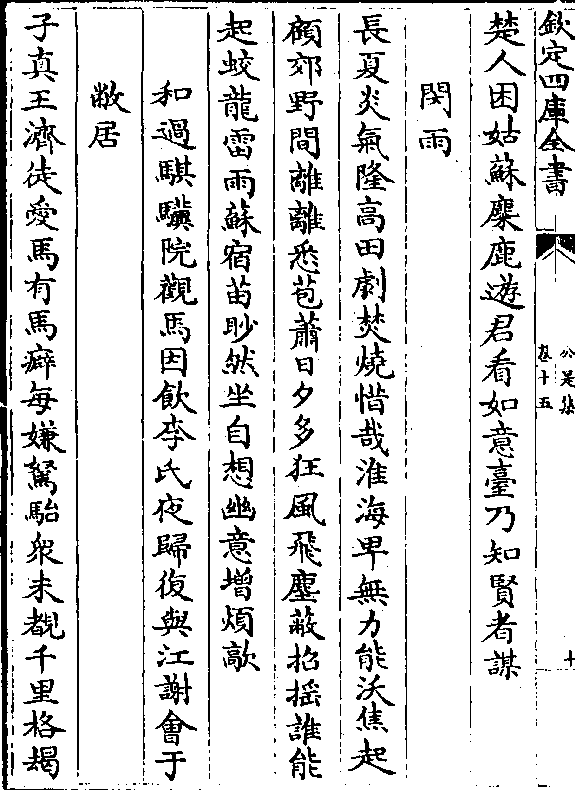 欽定四庫全書
公是集
卷十五
十
楚人困姑蘇麋鹿遊君看如意臺乃知賢者謀
閔雨
長夏炎氣隆高田劇焚燒惜哉淮海卑無力能沃焦起
顧郊野間離離悉苞蕭日夕多狂風飛塵蔽招摇誰能
起蛟龍雷雨蘇宿苗眇然坐自想幽意增煩歊
和過騏驥院觀馬因飲李氏夜歸復與江謝會于
敝居
子真王濟徒愛馬有馬癖每嫌駑駘衆未覩千里格朅